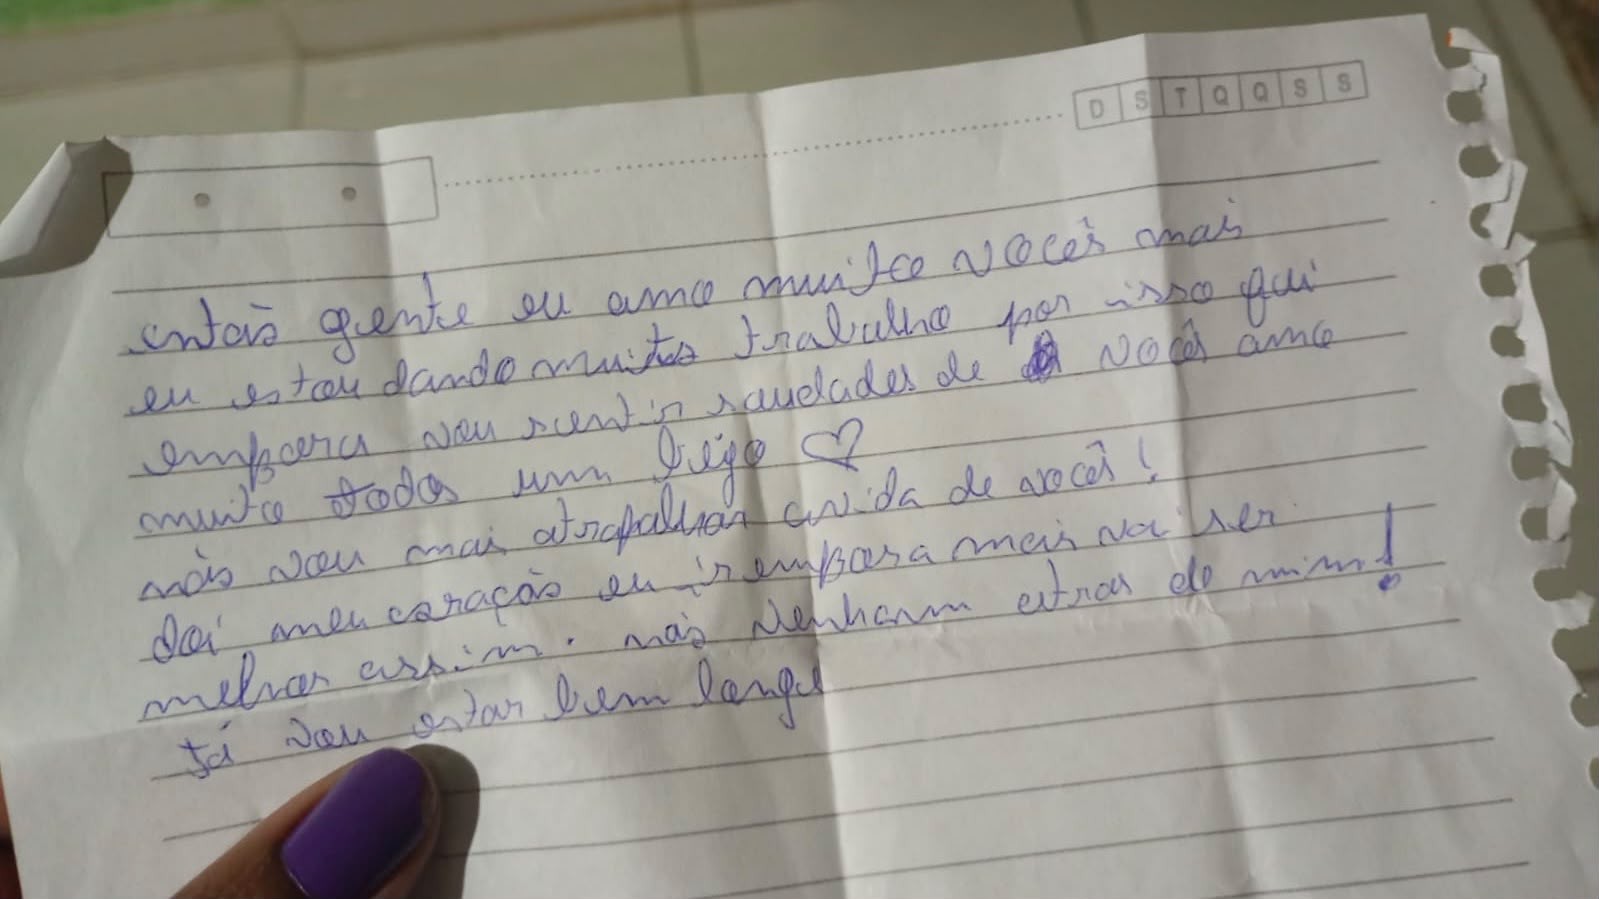 D S T Q Q S S
entaõ gente eu amo muito vocês mais
eu estou dando muito trabalho por isso qui
empora vou sentir saudades de vocês amo
muito todos um beijo
nãõ vou mais atrapalhar avida de vocês!
doí meu coração eu ir empora mais vai ser
melhor assim. não venham atras de mim!
já vou estar bem longe